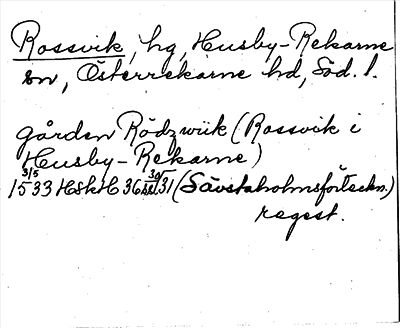 Rossvik, hg, Husby-Rekarne
sn, Österrekarne hd, Söd. l.
gården Rödzwiik (Rossvik i
Husby-Rekarne)
3/5
1533 HSH 36 31 (Sävstaholmsförteckn.)
regest.